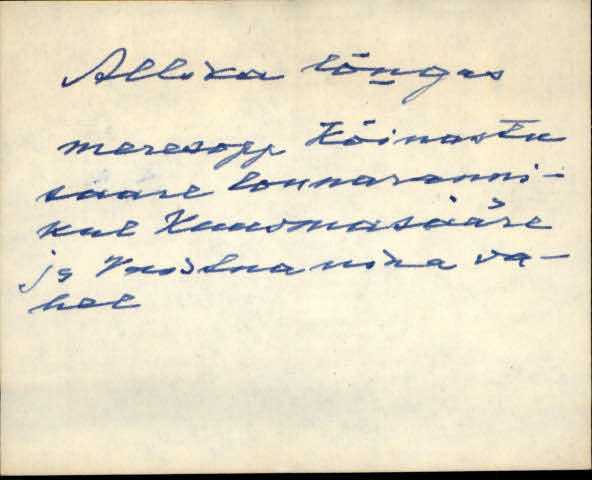 Allika lõngas
meresopp Kõinastu
saare lounaranni-
kul Kuuomasääre
ja nina va-
hel